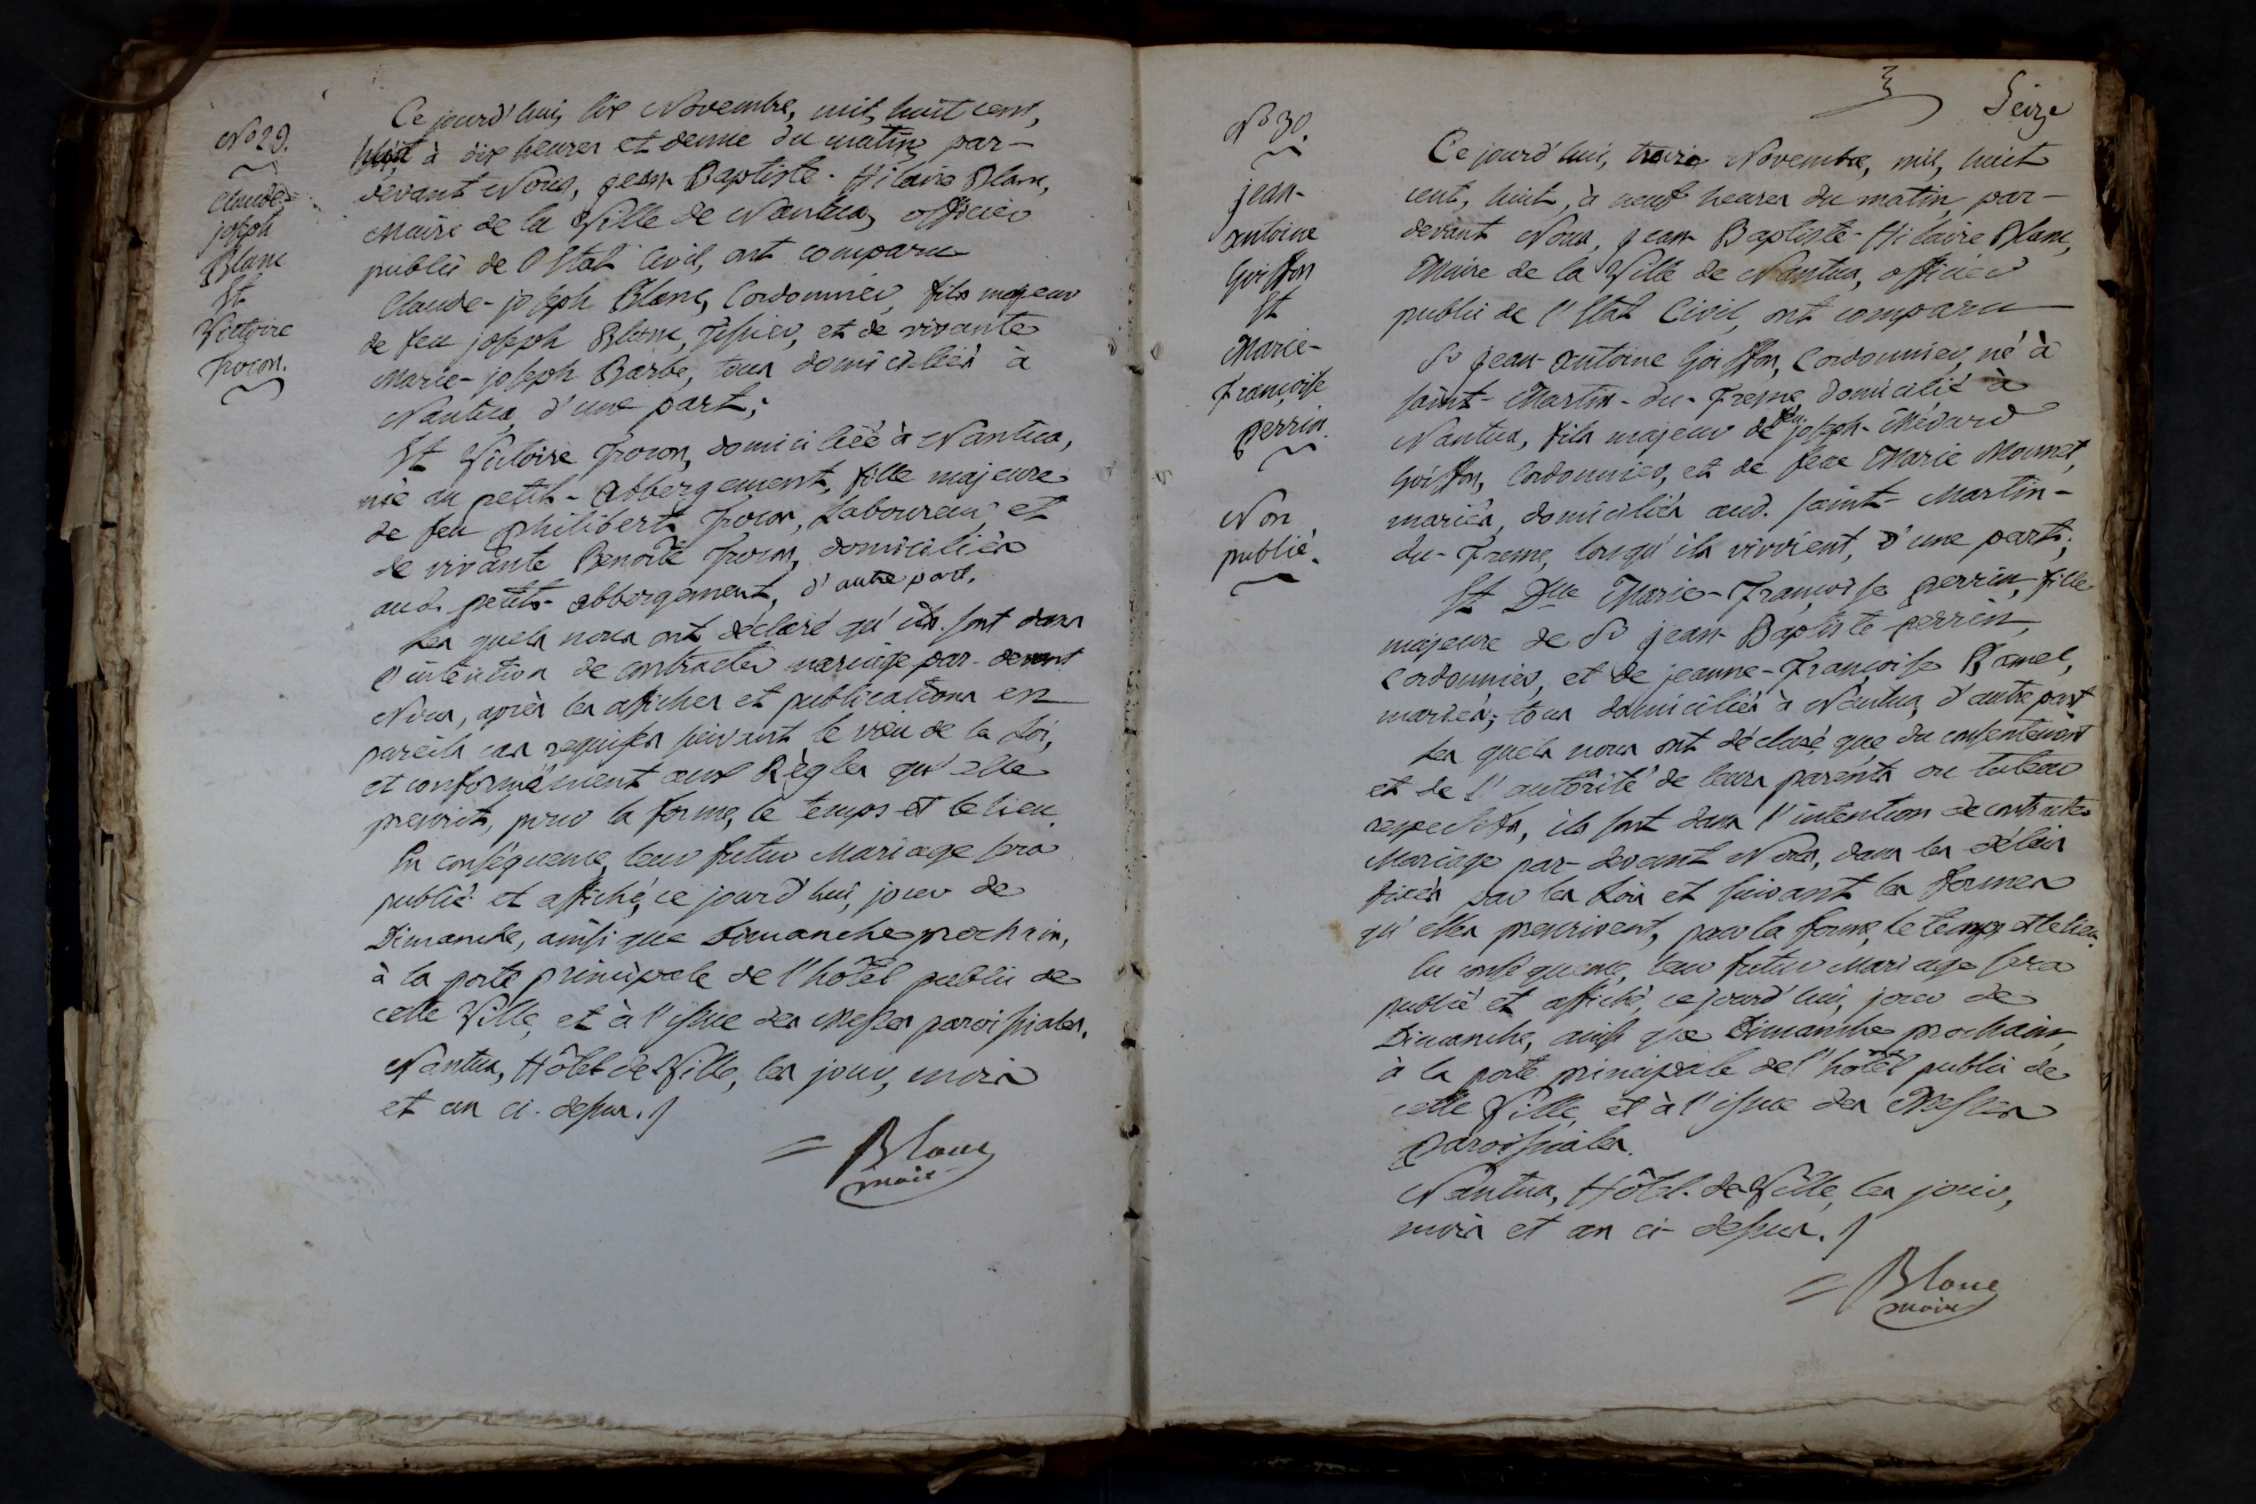 No 29.
Claude-
joseph
Blanc
Et
Victoire
Ce jourd'hui, six Novembre, mil, huit cent,
huit à dix heures et demie du matin, par-
devant Nous, Jean-Baptiste-Hilaire Blanc,
Maire de la Ville de Nantua, officier
public de l'Etat Civil, ont comparu
Claude-joseph Blanc, Cordonnier, fils majeur
de feu joseph Blanc, Tissier, et de vivante
Marie-joseph Barbe, tous domiciliés à
Nantua, d'une part;
Et Victoire domiciliée à Nantua,
née au petit-abbergement, fille majeure
de feu Philibert Laboureur, et
de vivante Benoîte domiciliés
aud. petit-abbergement, d'autre part.
Les quels nous ont déclaré qu'ils sont dans
l'intention de contracter mariage par-devant
Nous, après les affiches et publications en
pareils cas requises suivant le vœu de la Loi,
et conformément aux Règles qu'elle
prescrit, pour la forme, le temps et le lieu.
En conséquence, leur futur Mariage sera
publié et affiché, ce jourd'hui, jour de
Dimanche, ainsi que Dimanche prochain,
à la porte principale de l'hôtel public de
cette Ville, et à l'issue des Messes paroissiales.
Nantua, Hôtel de Ville, les jour, mois
et an ci-dessus.
Blanc
maire
Seize
No 30.
jean-
antoine
Goiffon
Et
Marie-
Françoise
perrin.
Non
publié.
Ce jourd'hui, treize Novembre, mil, huit
cent, huit, à neuf heures du matin, par-
devant Nous, Jean-Baptiste-Hilaire Blanc,
Maire de la Ville de Nantua, officier
public de l'Etat Civil, ont comparu
Sr jean-antoine Goiffon, Cordonnier, né à
Saint-Martin-du-Freme, domicilié à
Nantua, fils majeur de feu joseph-Médard
Goiffon, Cordonnier, et de feue Marie Mounet,
mariés, domiciliés aud. Saint-Martin-
du-Freme, lorsqu'ils vivoient, d'une part;
Et Dlle Marie-Françoise perrin, fille
majeure de Sr jean-Baptiste perrin,
Cordonnier, et de jeanne-Françoise
mariés; tous domiciliés à Nantua, d'autre part
Les quels nous ont déclaré que du consentement
et de l'autorité de leurs parents ou tuteur
respectifs, ils sont dans l'intention de contracter
Mariage par-devant Nous, dans les délais
fixés par les Lois et suivant les formes
qu'elles prescrivent, pour la forme, le temps et le lieu.
En conséquence, leur futur Mariage sera
publié et affiché, ce jourd'hui, jour de
Dimanche, ainsi que Dimanche prochain,
à la porte principale de l'hôtel public de
cette Ville, et à l'issue des Messes
Paroissiales.
Nantua, Hôtel-de-Ville, les jour,
mois et an ci-dessus.
Blanc
maire